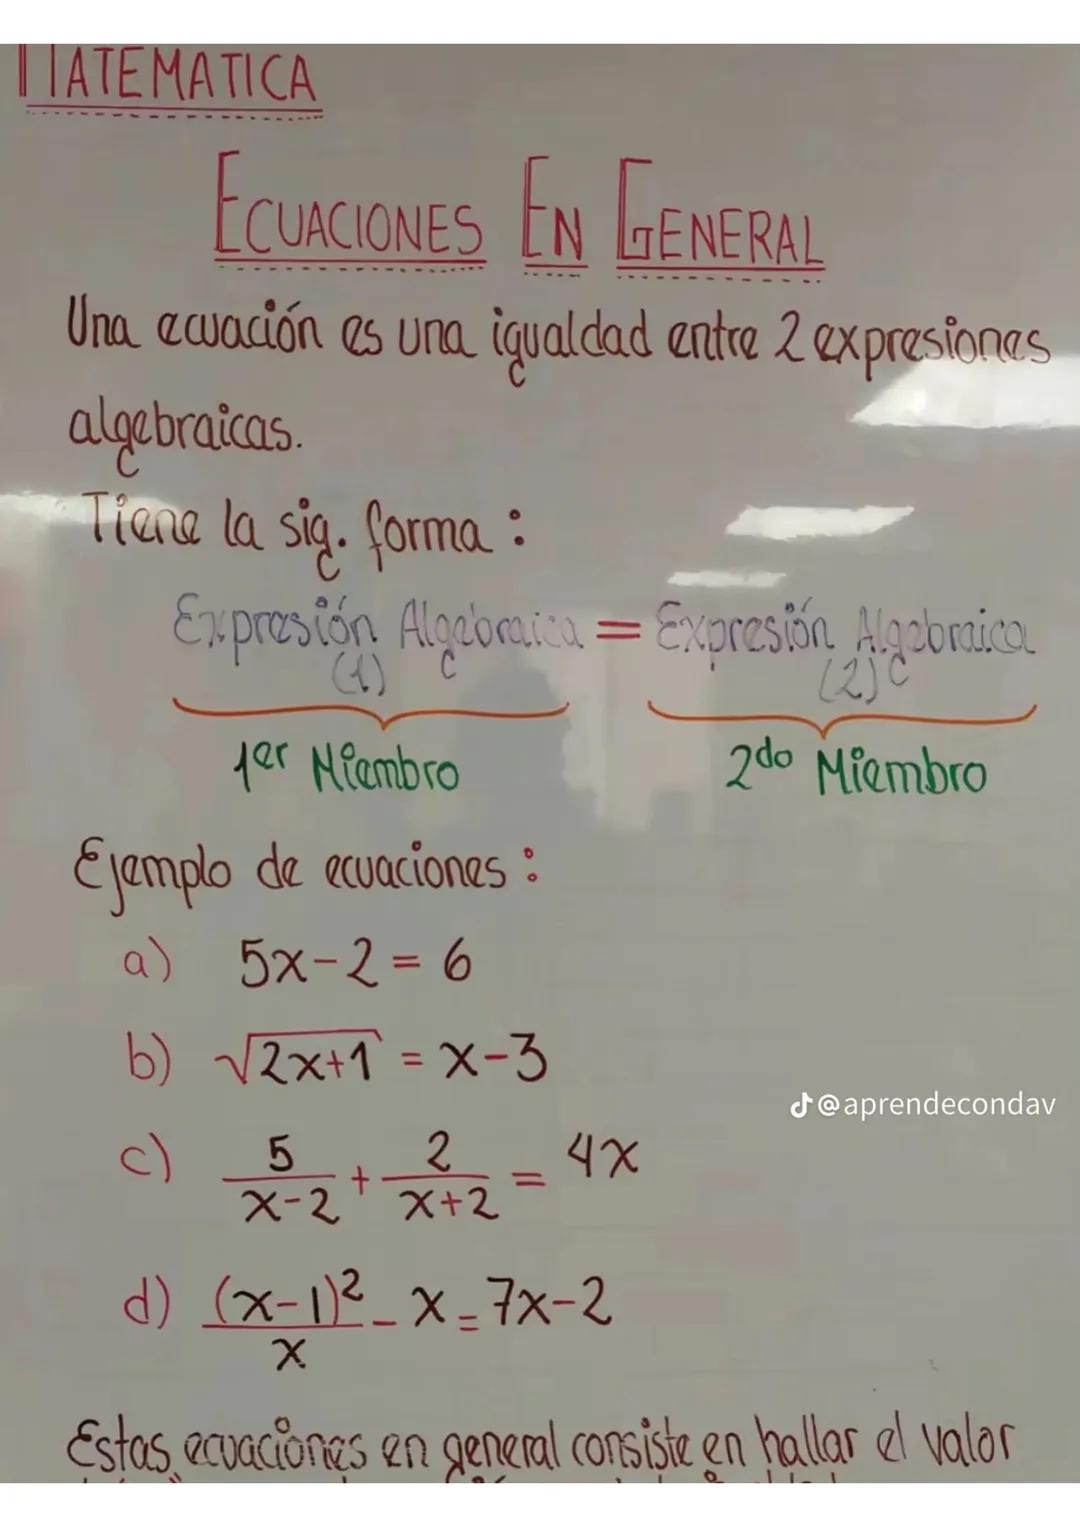 MATEMATICA
ECUACIONES EN GENERAL
Una ecuación es una igualdad entre 2 expresiones
algebraicas.
Tiene la sig. forma :
Expresión Algebraica = Expresión Algebraica
(1) (2)
1er Miembro 2do Miembro
Ejemplo de ecuaciones :
a) 5x-2 = 6
b) √2x+1 = x-3
@aprendecondav
c) 5/x-2 + 2/x+2 = 4x
d) (x-1)²/x - x = 7x-2
Estas ecuaciones en general consiste en hallar el valor